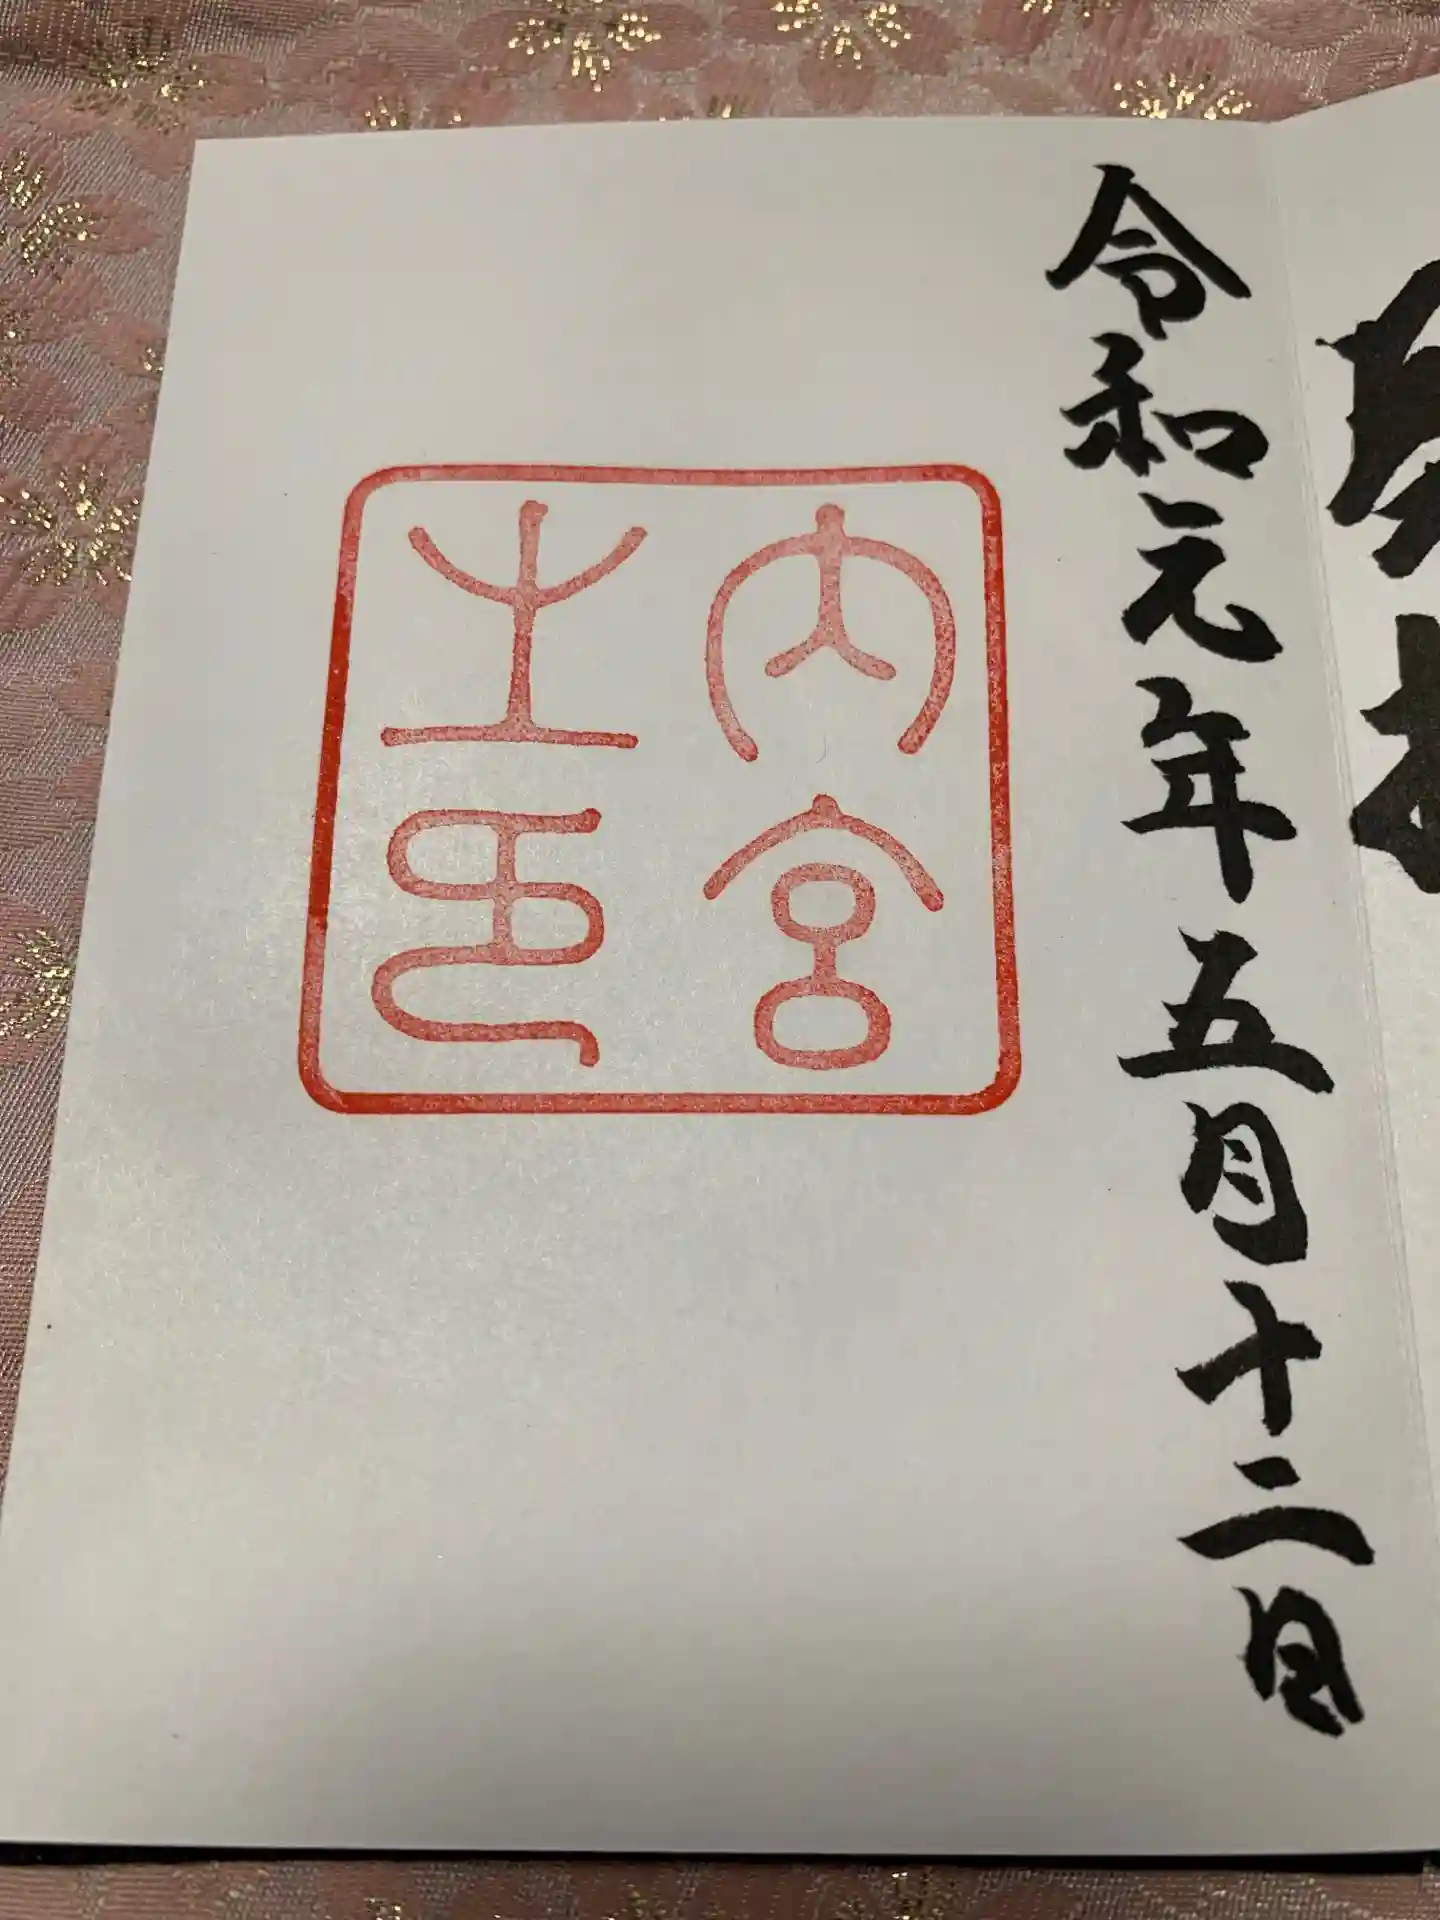 令和元年五月十二日
内宮
之印